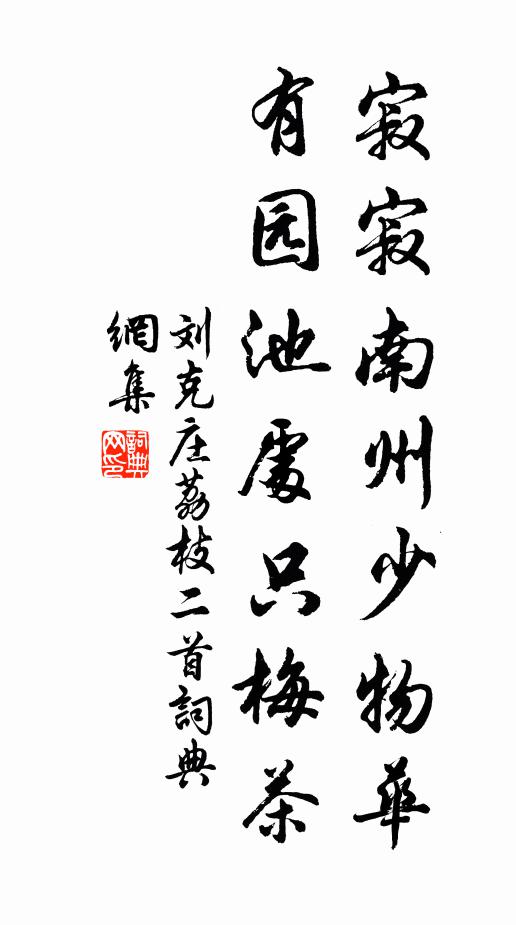 寂寂南州少物華
有园池處只梅茶
刘克庄荔枝二首詞典
網集
詞典网印